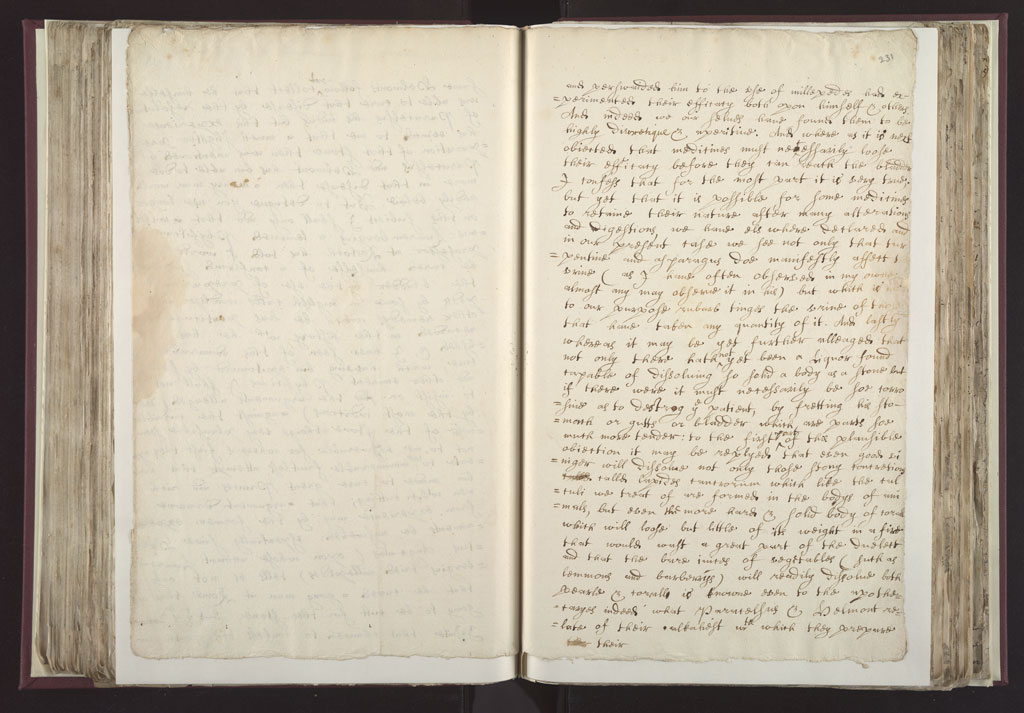 231
and perswaded him to the use of millepedes and ex-
=perimented their efficacy both upon himself & others
And indeed we our selves have found them to be
highly diuretique & aperitive. And where as it is next
obiected that medicines must necessarily loose
their efficacy before they can reach the bladder
I confess that for the most part it is very true.
but yet that it is possible for some medicines
to retaine their nature after many alterations
and digestions, we have els where declared and
in our present case we see not only that tur
=pentine and asparagus doe manifestly affect
urine (as I have often observed in my owne
almost any may observe it in his) but which is
to our purpose rubarb tinges the urine of
that have taken any quantity of it. And lastly
whereas it may be yet further alleaged that
not only there hath not yet been a liquor found
capable of dissolving so solid a body as a stone but
if there were it must necessarily be soe corro
=sive as to destroy ye patient, by fretting his sto-
=mach or gutts or bladder which are parts soe
much more tender: to the first part of this plausible
obiection it may be replyed that even good vi
=niger will dissolve not only those stony concretions
calld lapides cancrorum which like the cal
=culi we treat of are formed in the bodys of ani
=mals, but even the more hard & solid body of corall
which will loose but little of its weight in a fire
that would wast a great part of the
and that the bare iuices of vegetables (such as
lemmons and barberrys) will readily dissolve both
pearle & corall is knowne even to the apothe-
=caryes indeed what Paracelsus & Helmont re-
=late of their alkahest wth which they prepare
their